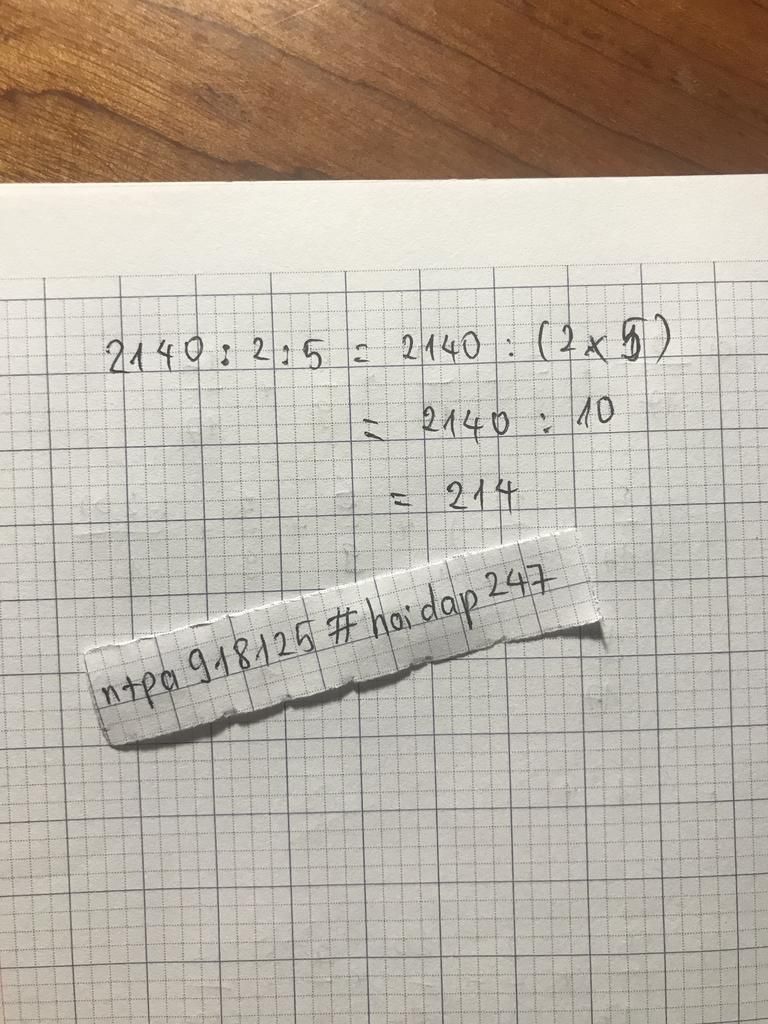 2140 : 2 : 5 = 2140 : (2 x 5)
= 2140 : 10
= 214
ntpa918125 # hoidap247